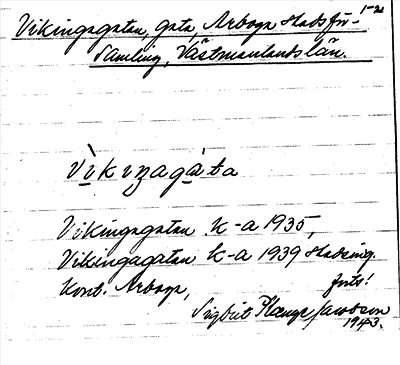 1-2
Vikingagatan, gata, Arboga stadsför-
samling, Västmanlands län.
vìkiŋagàta
Vikingagatan k-a 1935,
Vikingagatan k-a 1939 Stadsing.
kont. Arboga,
forts!
Sigbrit Plænge Jacobson
1943.